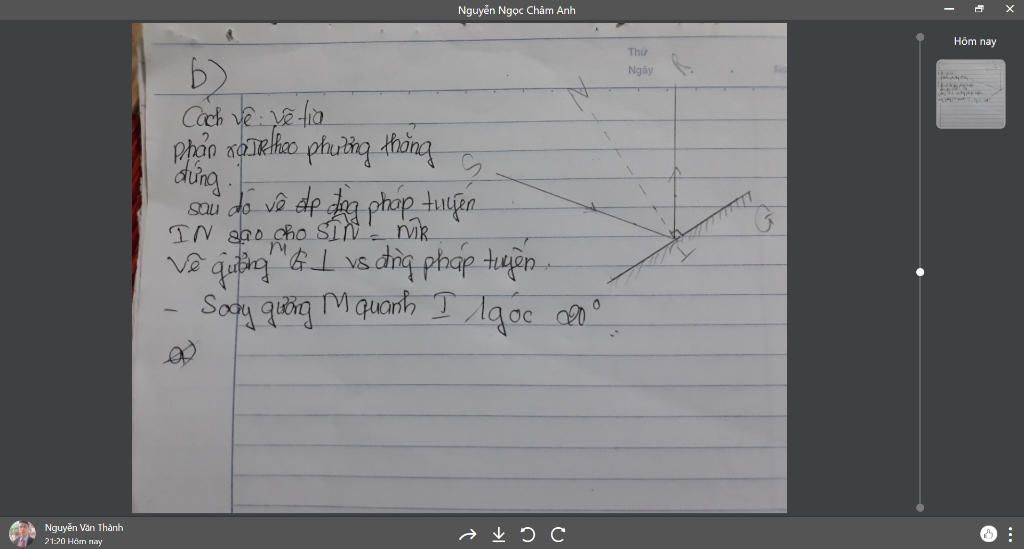 Nguyễn Ngọc Châm Anh
Hôm nay
Thứ
Ngày
R
b)
N
Cách vẽ: vẽ tia
phản xạ IR theo phương thẳng
đứng.
S
sau đó vẽ đg pháp tuyến
IN sao cho SIN = NIR
G
I
Vẽ gương M G ⊥ vs đg pháp tuyến.
- Soay gương M quanh I 1 góc 20°
a)
Nguyễn Văn Thành
21:20 Hôm nay